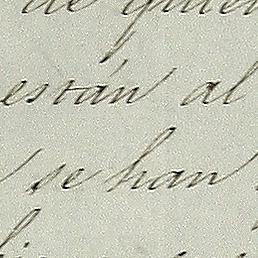 de quien
están al
se han